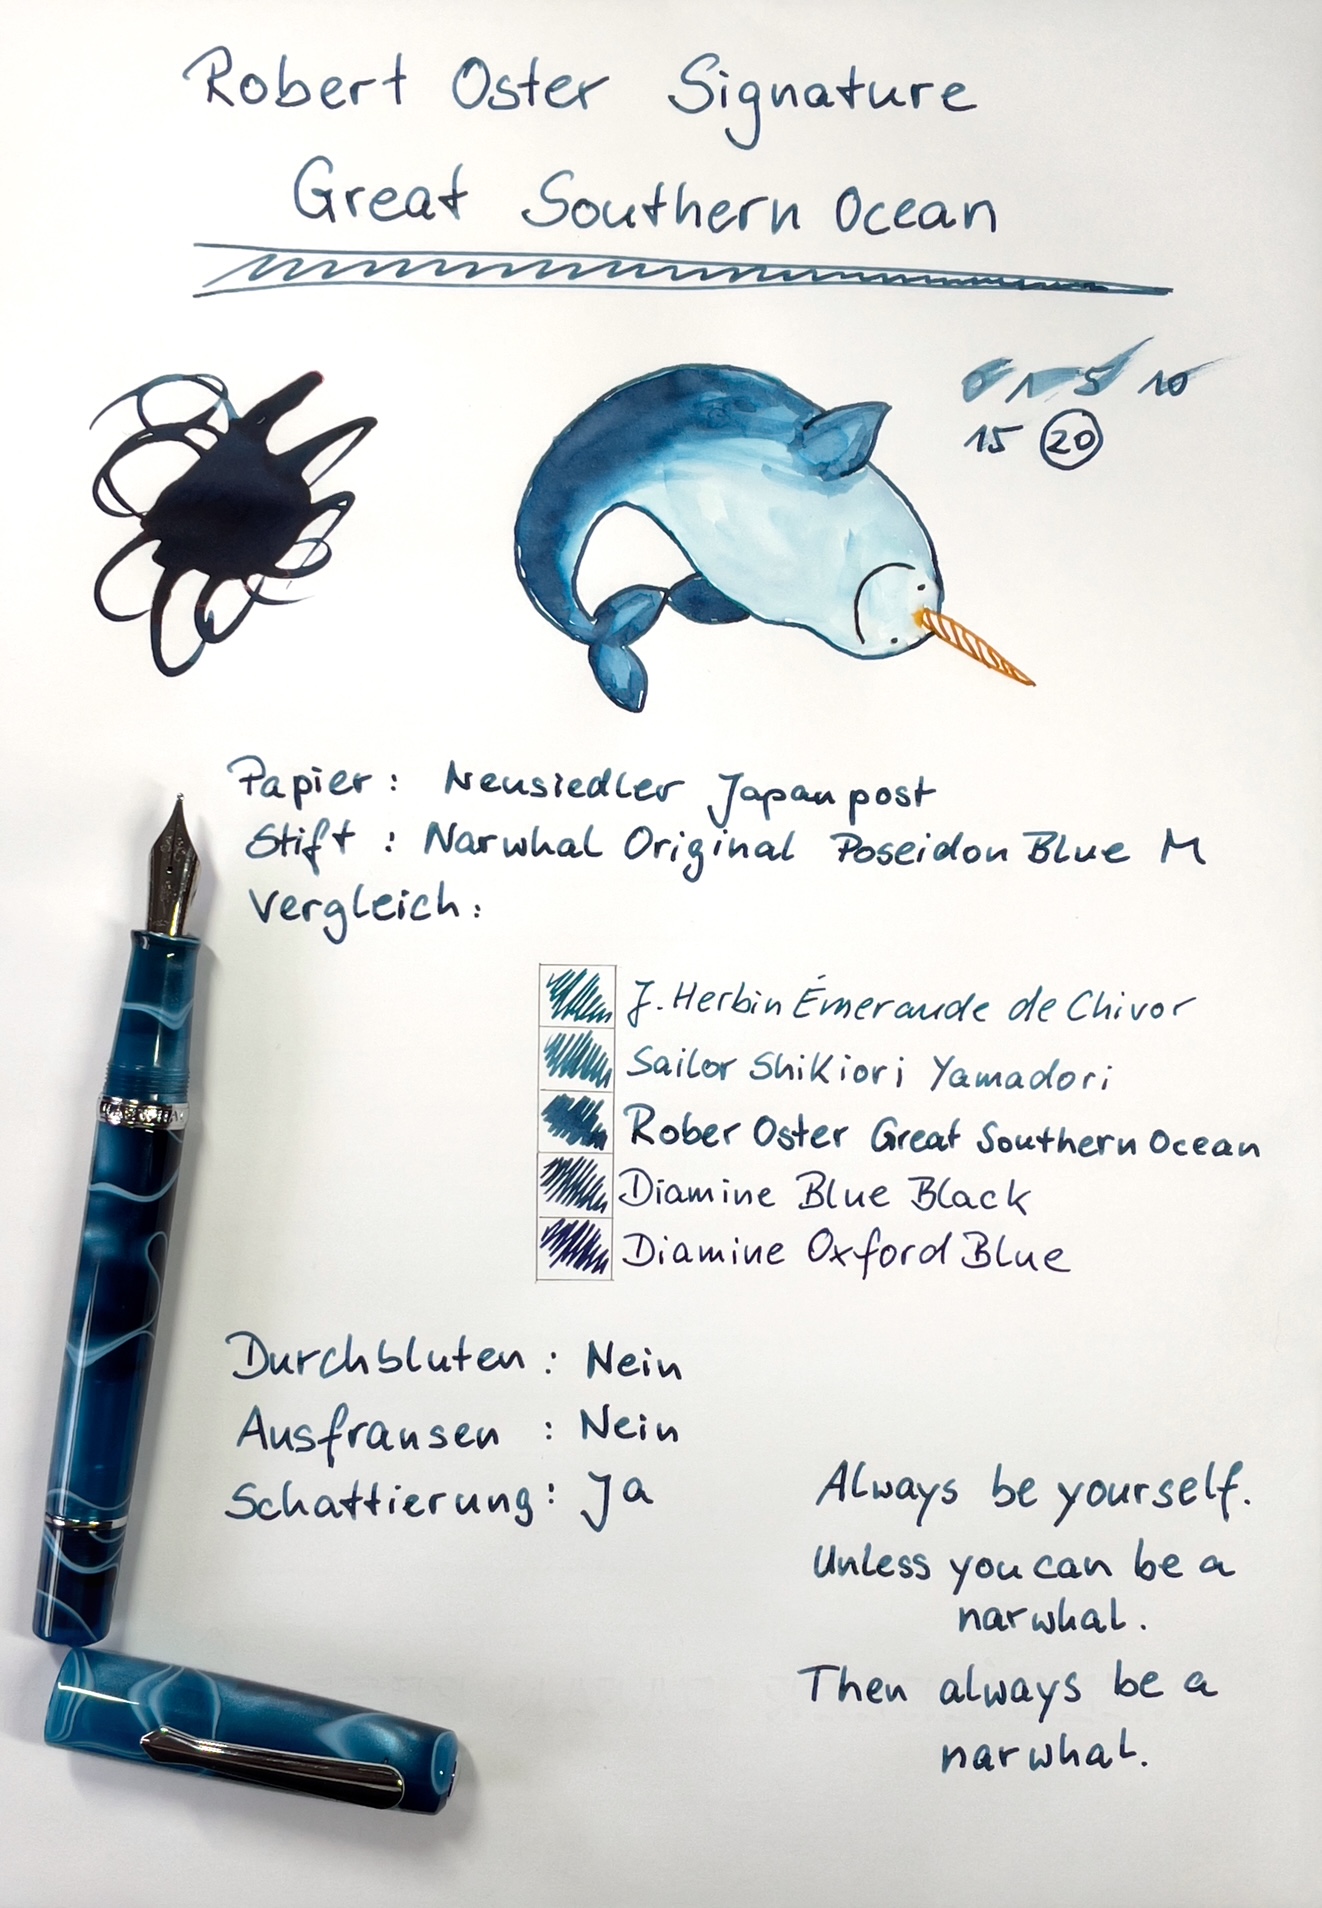 Robert Oster Signature
Great Southern Ocean
0 1 5 10
15 20
Papier: Neusiedler Japanpost
Stift: Narwhal Original Poseidon Blue M
Vergleich:
J. Herbin Émeraude de Chivor
Sailor Shikiori Yamadori
Rober Oster Great Southern Ocean
Diamine Blue Black
Diamine Oxford Blue
Durchbluten: Nein
Ausfransen: Nein
Schattierung: Ja
Always be yourself.
Unless you can be a
narwhal.
Then always be a
narwhal.